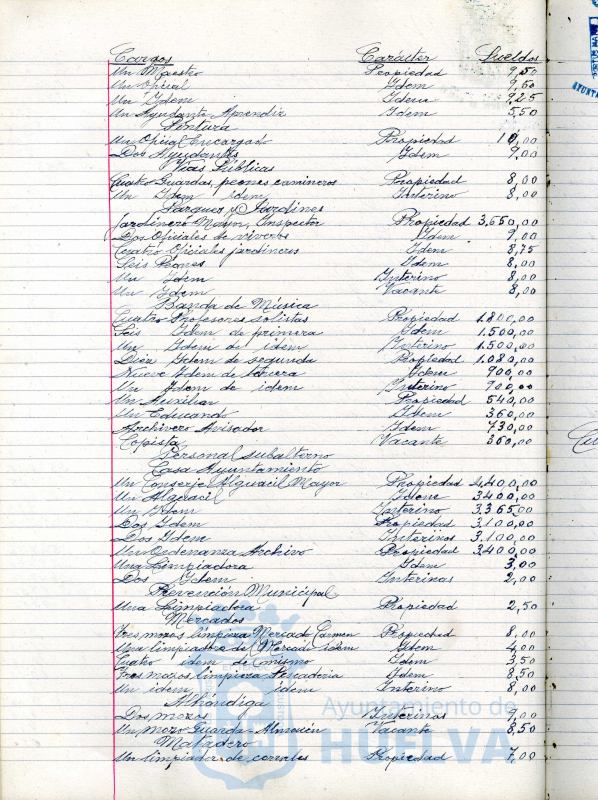 Cargos Carácter Sueldos
Un Maestro Propiedad 9,50
Un Oficial Idem 9,50
Un Idem Idem 9,25
Un Ayudante Aprendiz Idem 5,50
Pintura
Un Oficial Encargado Propiedad 10,00
Dos Ayudantes Idem 9,00
Vías Públicas
Cuatro Guardas, peones camineros Propiedad 8,00
Un Idem idem Interino 8,00
Parques y Jardines
Jardinero Mayor, Inspector Propiedad 3.650,00
Dos Oficiales de viveros Idem 9,00
Cuatro Oficiales jardineros Idem 8,75
Seis Peones Idem 8,00
Un Idem Interino 8,00
Un Idem Vacante 8,00
Banda de Música
Cuatro Profesores solistas Propiedad 1.800,00
Seis Idem de primera Idem 1.500,00
Un Idem de idem Interino 1.500,00
Diez Idem de segunda Propiedad 1.080,00
Nueve Idem de tercera Idem 900,00
Un Idem de idem Interino 900,00
Un Auxiliar Propiedad 540,00
Un Educando Idem 360,00
Archivero Avisador Idem 730,00
Copista Vacante 360,00
Personal subalterno
Casa Ayuntamiento
Un Conserje Alguacil Mayor Propiedad 4.400,00
Un Alguacil Idem 3.400,00
Un Idem Interino 3.365,00
Dos Idem Propiedad 3.100,00
Dos Idem Interinos 3.100,00
Un Ordenanza Archivo Propiedad 3.400,00
Una Limpiadora Idem 3,00
Dos Idem Interinas 2,00
Prevención Municipal
Una Limpiadora Propiedad 2,50
Mercados
Tres mozos limpieza Mercado Carmen Propiedad 8,00
Una limpiadora del Mercado idem Idem 4,00
Cuatro idem de mismo Idem 3,50
Tres mozos limpieza Pescadería Idem 8,50
Un idem idem Interino 8,00
Alhóndiga
Dos mozos Interinos 9,00
Un mozo Guarda-Almacén Vacante 8,50
Matadero
Un limpiador de corrales Propiedad 7,00
Ayuntamiento de
HUELVA